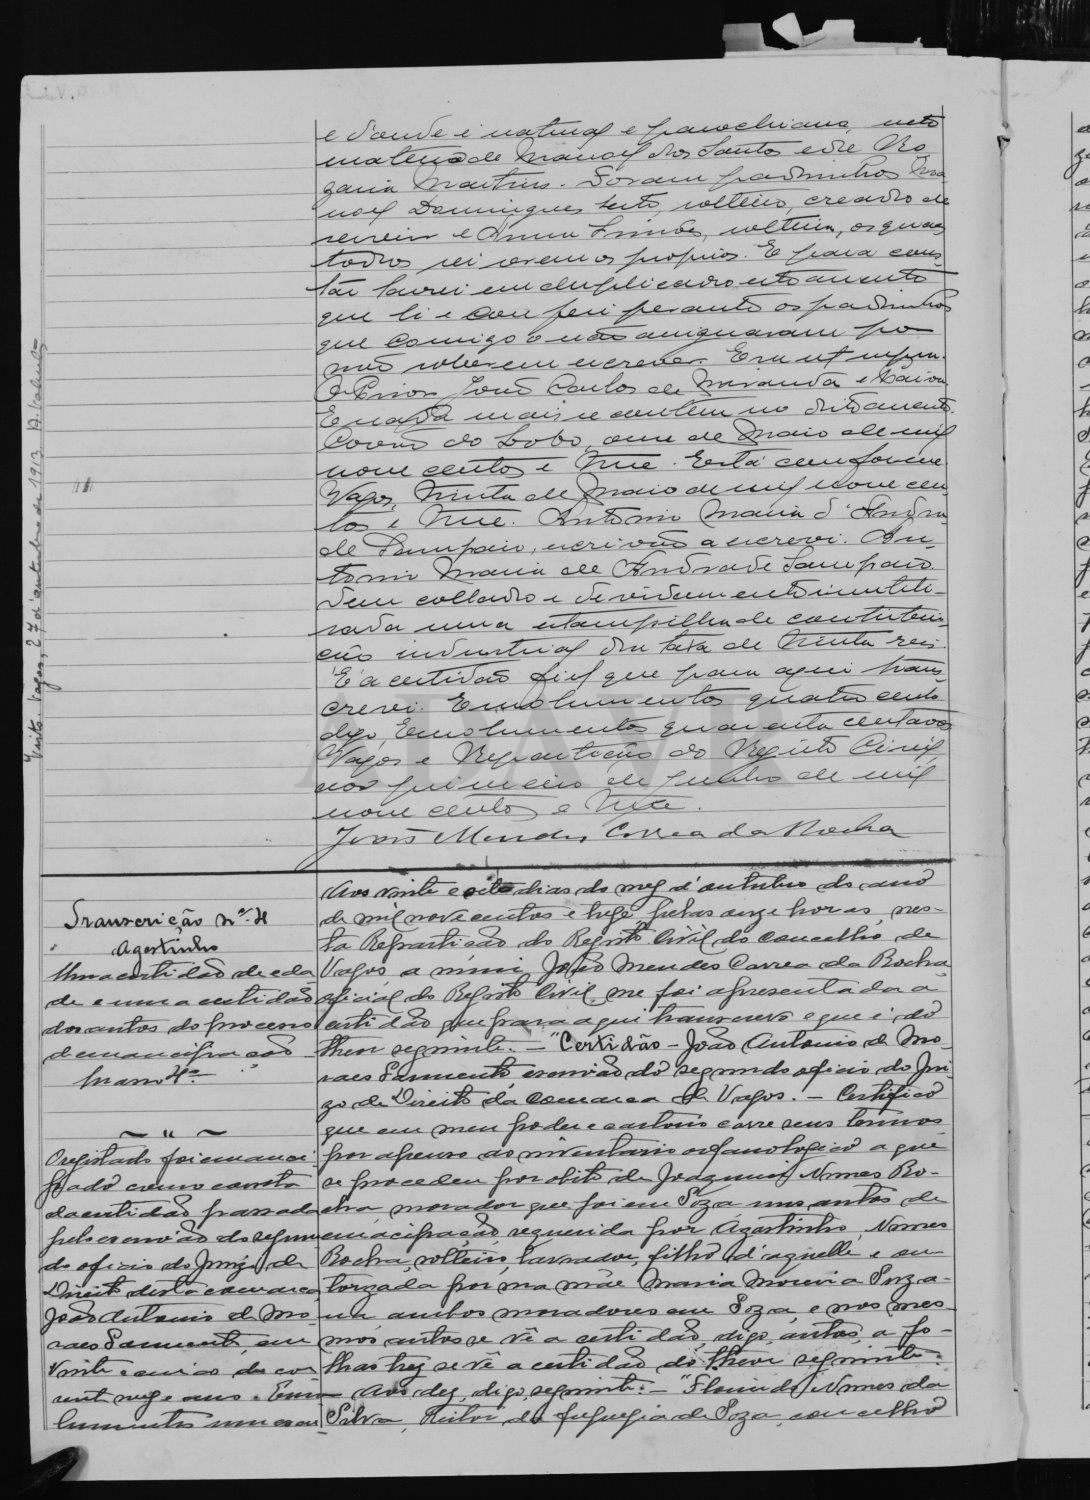 e d'onde é natural e parochiana, neto
materno de Manoel dos Santos e de Ro
garia Martins. Foram padrinhos Ma
noel Domingues, solteiro, creado de
servir e Anna, solteira, os quaes
todos sei serem os proprios. E para cons
tar lavrei em duplicado este assento
que li e conferi perante os padrinhos
que comigo não assignaram por
não saberem escrever. Era ut supra.
O Prior João Carlos de Miranda e
E nada mais se contém no dito assento.
Covão do Lobo, onze de Maio de mil
nove centos e treze. Está conforme
Vagos, trinta de Maio de mil nove cen
tos e treze. Antonio Maria d'Andra
de Sampaio, escrivão a escrevi. An
tonio Maria de Andrade Sampaio
Tem collado e devidamente inutili-
sada uma estampilha de contribui
ção industrial da taxa de trinta reis.
É a certidão fiel que para aqui trans
crevi. Emolumentos quatro cento
digo, Emolumentos quarenta centavos
Vagos e Repartição do Registo Civil
aos primeiro de Junho de mil
nove centos e treze.
João Mendes Correa da Rocha
Visto. Vagos, 27 d'outubro de 1913. A. Valente
Transcrição nº 4
Agostinho
Uma certidão de eda
de e uma certidão
dos autos do processo
d'emancipação
Nº 4º
O registado foi emanci
pado como consta
da certidão passada
pelo escrivão do segun
do oficio do Juizo de
Direito desta comarca
João Antonio de Mo
raes Sarmento, em
vinte e cinco do cor
rente mez e ano. Emo
lumentos um escu
Aos vinte e oito dias do mez d'outubro do ano
de mil nove centos e treze, pelas onze horas, nes-
ta Repartição do Registo Civil do Concelho de
Vagos, a mim, João Mendes Correa da Rocha
oficial do Registo Civil, me foi apresentada a
certidão que para aqui transcrevo e que é do
theor seguinte: - "Certidão - João Antonio de Mo-
raes Sarmento, escrivão do segundo oficio do Jui
zo de Direito da Comarca de Vagos. - Certifico
que em meu poder e cartorio corre seus termos
por apenso ao inventario orfanologico a que
se procedeu por obito de Joaquim Nunes Ro-
cha morador que foi em Soza uns autos de
emancipação requerida por Agostinho Nunes
Rocha, solteiro, lavrador, filho d'aquelle e au
torizada por sua mãe Maria Moreira Suza-
na ambos moradores em Soza, e nos mes-
mos autos se vê a certidão, digo, autos, a fo-
lhas trez se vê a certidão do theor seguinte:
- Aos dez, digo, seguinte: - "Florindo Nunes da
Silva, Reitor da freguezia de Soza, concelho